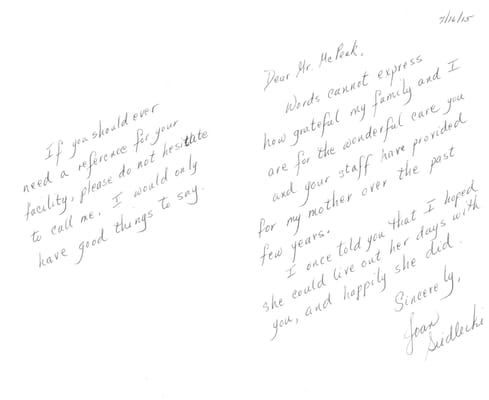 7/16/15
Dear Mr. McPeak,
Words cannot express
how grateful my family and I
are for the wonderful care you
and your staff have provided
for my mother over the past
few years.
I once told you that I hoped
she could live out her days with
you, and happily she did.
Sincerely,
Joan
Siedlecki
If you should ever
need a reference for your
facility, please do not hesitate
to call me. I would only
have good things to say.